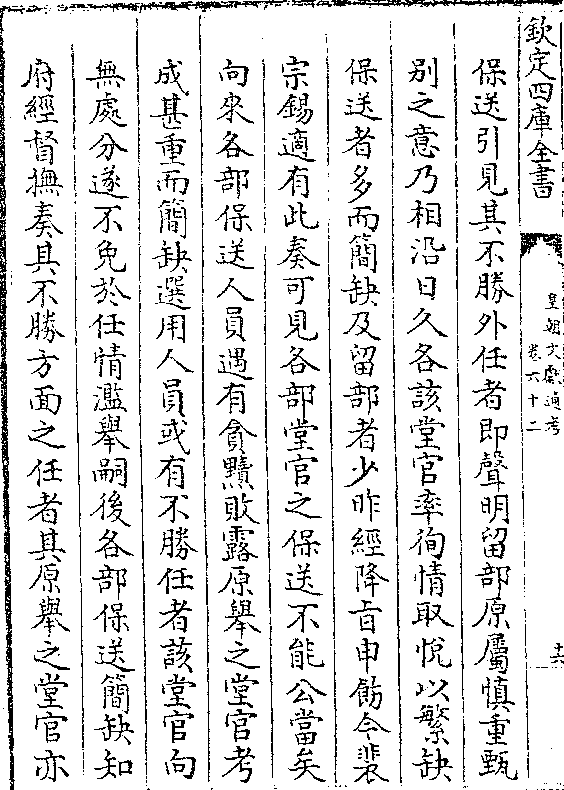 欽定四庫全書
皇朝文獻通考
卷六十二
十六
保送引見其不勝外任者即聲明留部原屬慎重甄
别之意乃相沿日久各該堂官率徇情取悅以繁缺
保送者多而簡缺及留部者少昨經降㫖申飭今裴
宗錫適有此奏可見各部堂官之保送不能公當矣
向來各部保送人員遇有貪黷敗露原舉之堂官考
成甚重而簡缺選用人員或有不勝任者該堂官向
無處分遂不免於任情濫舉嗣後各部保送簡缺知
府經督撫奏其不勝方面之任者其原舉之堂官亦